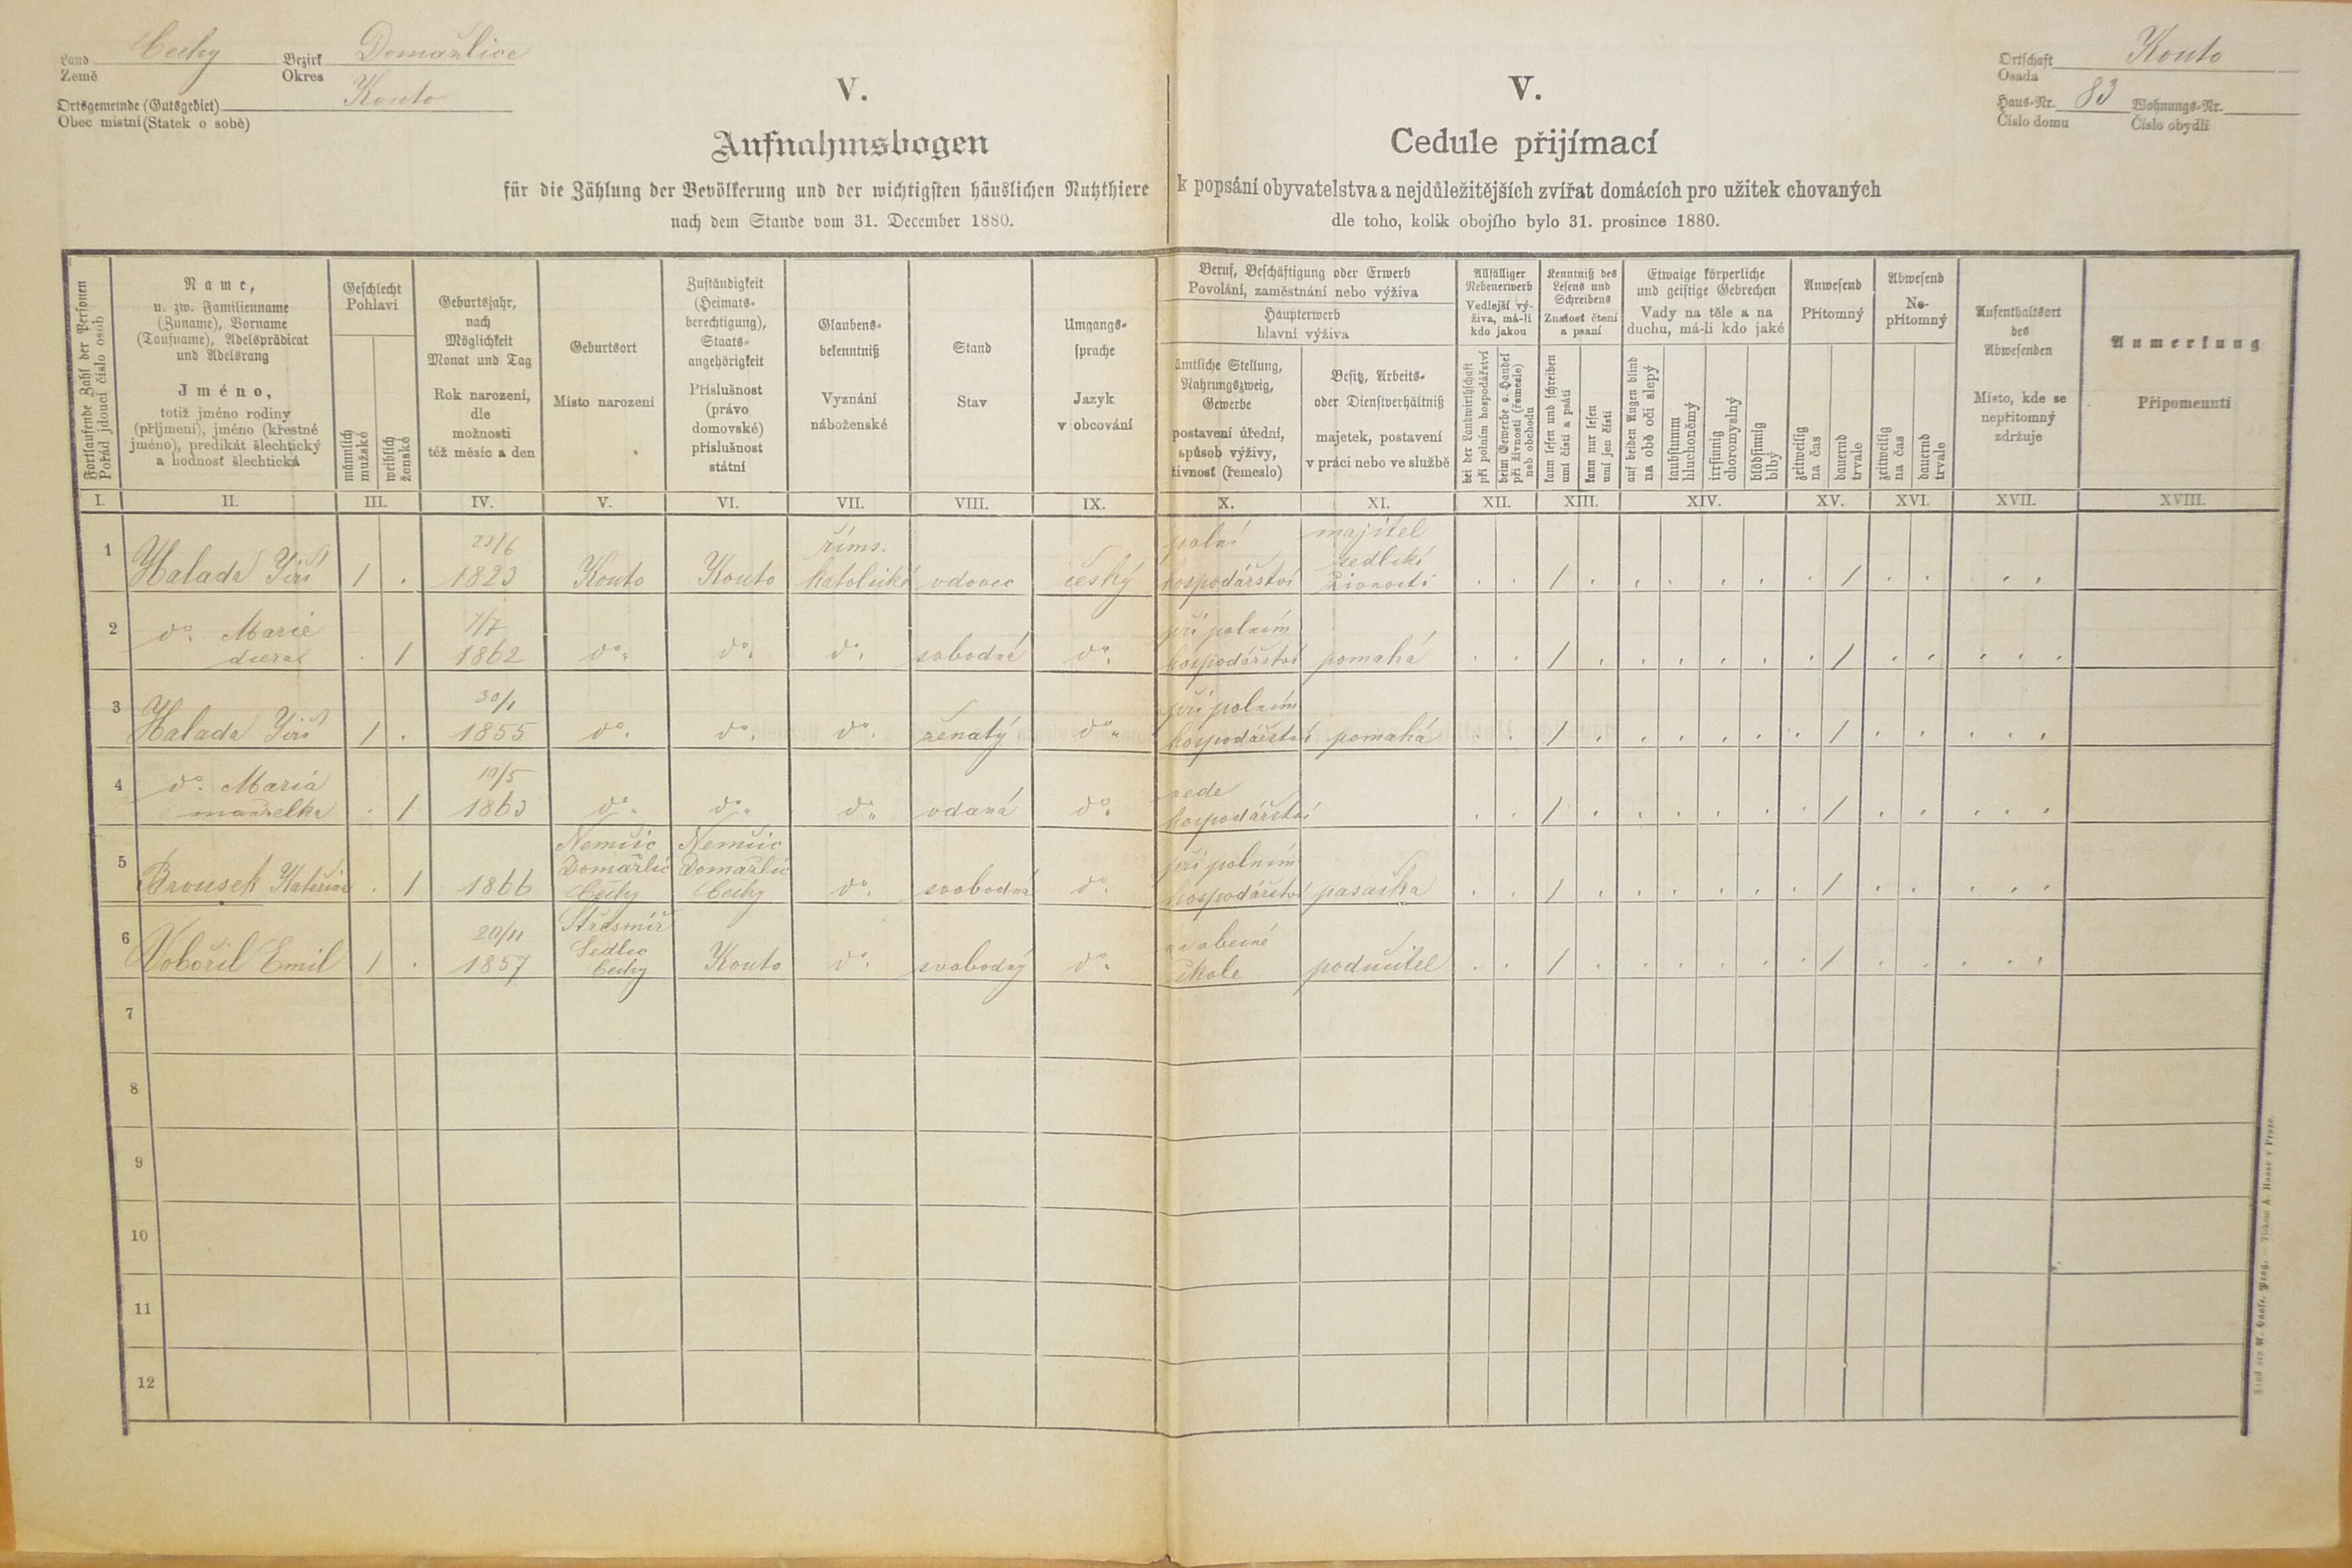 Land Čechy Bezirk Domažlice
Země Okres
Ortsgemeinde (Gutsgebiet) Kouto
Obec místní (Statek o sobě)
V.
Aufnahmsbogen
für die Zählung der Bevölkerung und der wichtigsten häuslichen Nutzthiere
nach dem Stande vom 31. December 1880.
V.
Cedule přijímací
k popsání obyvatelstva a nejdůležitějších zvířat domácích pro užitek chovaných
dle toho, kolik obojího bylo 31. prosince 1880.
Ortschaft Kouto
Osada
Haus-Nr. 83 Wohnungs-Nr.
Číslo domu Číslo obydlí
Fortlaufende Zahl der Personen
Pořád jdoucí číslo osob
Name,
u. zw. Familienname
(Zuname), Vorname
(Taufname), Adelsprädicat
und Adelsrang
Jméno,
totiž jméno rodiny
(příjmení), jméno (křestné
jméno), predikát šlechtický
a hodnost šlechtická
Geschlecht
Pohlaví
männlich
mužské
weiblich
ženské
Geburtsjahr,
nach
Möglichkeit
Monat und Tag
Rok narození,
dle
možnosti
též měsíc a den
Geburtsort
Místo narození
Zuständigkeit
(Heimats-
berechtigung),
Staats-
angehörigkeit
Příslušnost
(právo
domovské)
příslušnost
státní
Glaubens-
bekenntniß
Vyznání
náboženské
Stand
Stav
Umgangs-
sprache
Jazyk
v obcování
Beruf, Beschäftigung oder Erwerb
Povolání, zaměstnání nebo výživa
Haupterwerb
hlavní výživa
ämtliche Stellung,
Nahrungszweig,
Gewerbe
postavení úřední,
způsob výživy,
živnost (řemeslo)
Besitz, Arbeits-
oder Dienstverhältniß
majetek, postavení
v práci nebo ve službě
Allfälliger
Nebenerwerb
Vedlejší vý-
živa, má-li
kdo jakou
bei der Landwirthschaft
při polním hospodářství
beim Gewerbe o. Handel
při živnosti (řemesle)
neb obchodu
Kenntniß des
Lesens und
Schreibens
Znalost čtení
a psaní
kann lesen und schreiben
umí čísti a psáti
kann nur lesen
umí jen čísti
Etwaige körperliche
und geistige Gebrechen
Vady na těle a na
duchu, má-li kdo jaké
auf beiden Augen blind
na obě oči slepý
taubstumm
hluchoněmý
irrsinnig
choromyslný
blödsinnig
blbý
Anwesend
Přítomný
zeitweilig
na čas
dauernd
trvale
Abwesend
Ne-
přítomný
zeitweilig
na čas
dauernd
trvale
Aufenthaltsort
des
Abwesenden
Místo, kde se
nepřítomný
zdržuje
Anmerkung
Připomenutí
I. II. III. IV. V. VI. VII. VIII. IX. X. XI. XII. XIII. XIV. XV. XVI. XVII. XVIII.
23/6 říms. polní majitel
1 Halada Jiří 1 . 1823 Kouto Kouto katolické vdovec český hospodářství sedlské živnosti . . / . . . . . . / . . . .
do. Marie 7/7 při polním
2 dcera . 1 1862 do. do. do. sobodná do. hospodářství pomahá . . / . . . . . . / . . . . .
30/1 při polním
3 Halada Jiří 1 . 1855 do. do. do. ženatý do. hospodářství pomahá . . / . . . . . . / . . . . .
do. Maria 10/5 vede
4 manželka . 1 1863 do. do. do. vdaná do. hospodářství . . / . . . . . . / . . . . .
Němčic Němčic
Domažlic Domažlic při polním
5 Brousek Kateřina . 1 1866 Čechy Čechy do. svobodná do. hospodářství pasačka . . / . . . . . . / . . . . .
Střesmíř
20/11 Sedlec na obecné
6 Vobořil Emil 1 . 1857 Čechy Kouto do. svobodný do. škole podučitel . . / . . . . . . / . . . . .
7
8
9
10
11
12